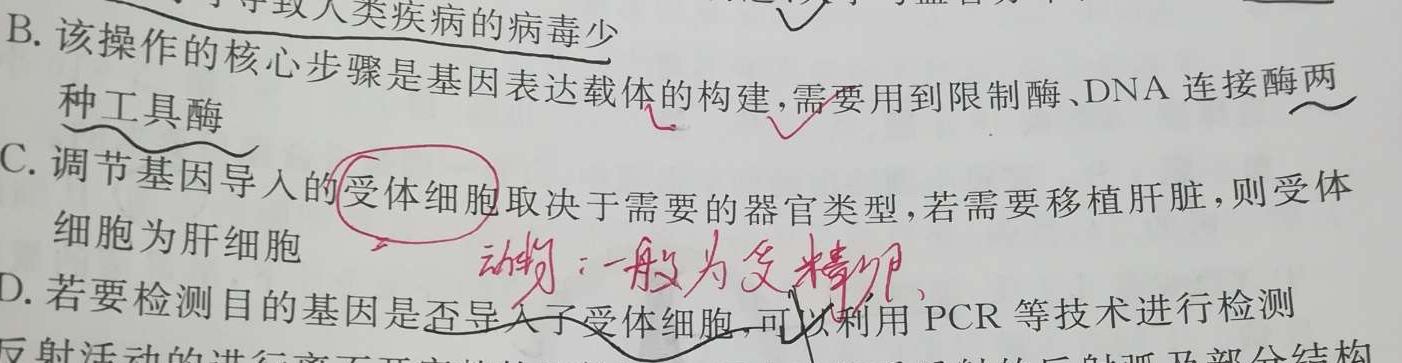 导致人类疾病的病毒少
B. 该操作的核心步骤是基因表达载体的构建,需要用到限制酶、DNA 连接酶两
种工具酶
C. 调节基因导入的受体细胞取决于需要的器官类型,若需要移植肝脏,则受体
细胞为肝细胞
动物:一般为受精卵
D. 若要检测目的基因是否导入了受体细胞,可以利用 PCR 等技术进行检测